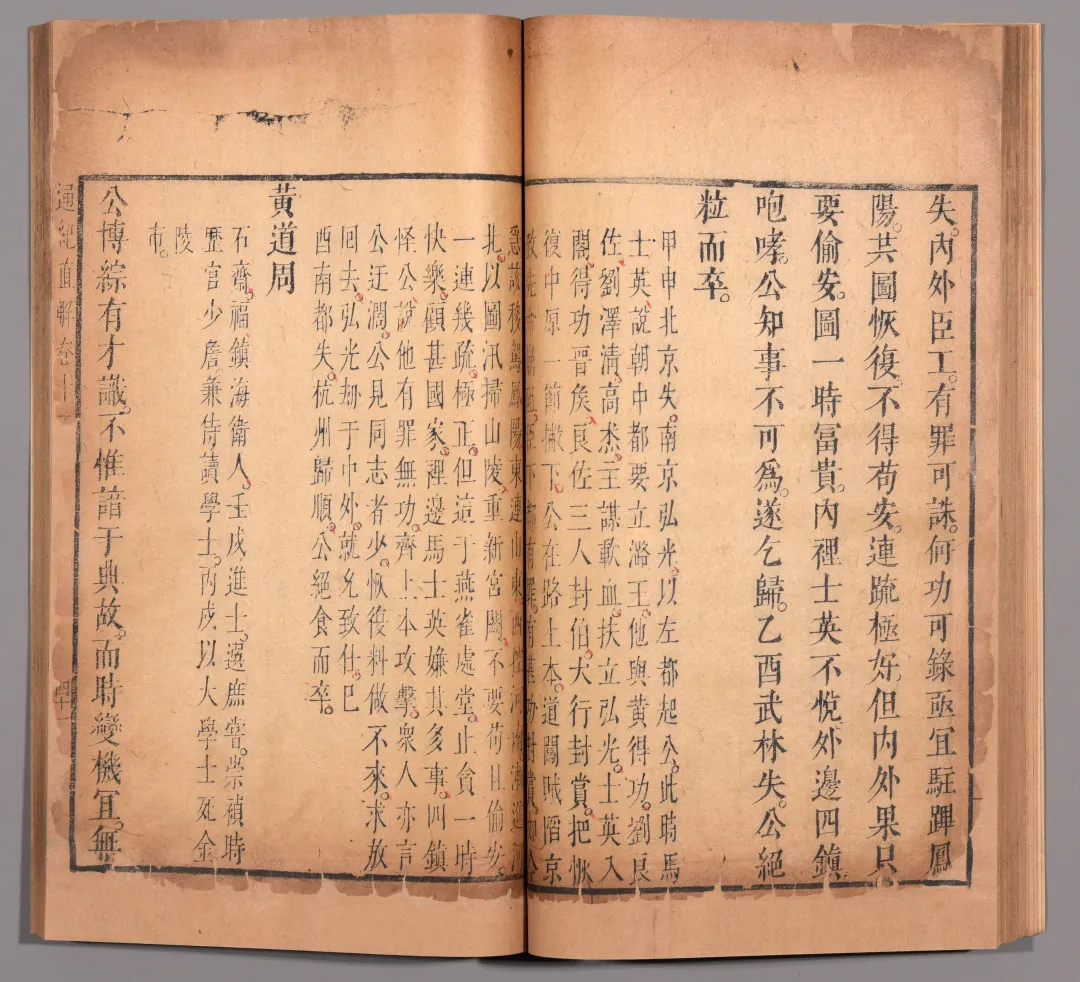 失。內外臣工。有罪可誅。何功可錄亟宜駐蹕鳳
陽。共圖恢復。不得苟安。連疏極好。但內外果只
要偷安。圖一時冨貴。內裡士英不悅。外邊四鎮
咆哮。公知事不可爲。遂乞歸。乙酉武林失。公絕
粒而卒。
甲申北京失。南京弘光。以左都起公。此時馬
士英。說朝中都要立潞王。他與黄得功。劉良
佐。劉澤清。高杰。主謀歃血。扶立弘光。士英入
閣。得功晉矦。良佐三人封伯。大行封賞。把恢
復中原一節撇下。公在路上本。道闖賊陷京
以圖汛掃山陵。重新宮闕。不要苟且偷安。
一連幾疏。極正。但這于燕雀處堂。止貪一時
快樂。顧甚國家。裡邊馬士英嫌其多事。四鎮
怪公。說他有罪無功。齊上本攻擊。衆人亦言
公迂濶。公見同志者少。恢復料做不來。求放
囘去。弘光刼于中外。就允致仕。已
酉南都失。杭州歸順。公絕食而卒。
黄道周
石齋。福鎮海衛人。壬戌進士。選庶嘗。崇禎時
歷官少詹。兼侍讀學士。丙戌以大學士死金
陵
市。
公博綜有才識。不惟諳于典故。而時變機冝。無
通紀直解卷十